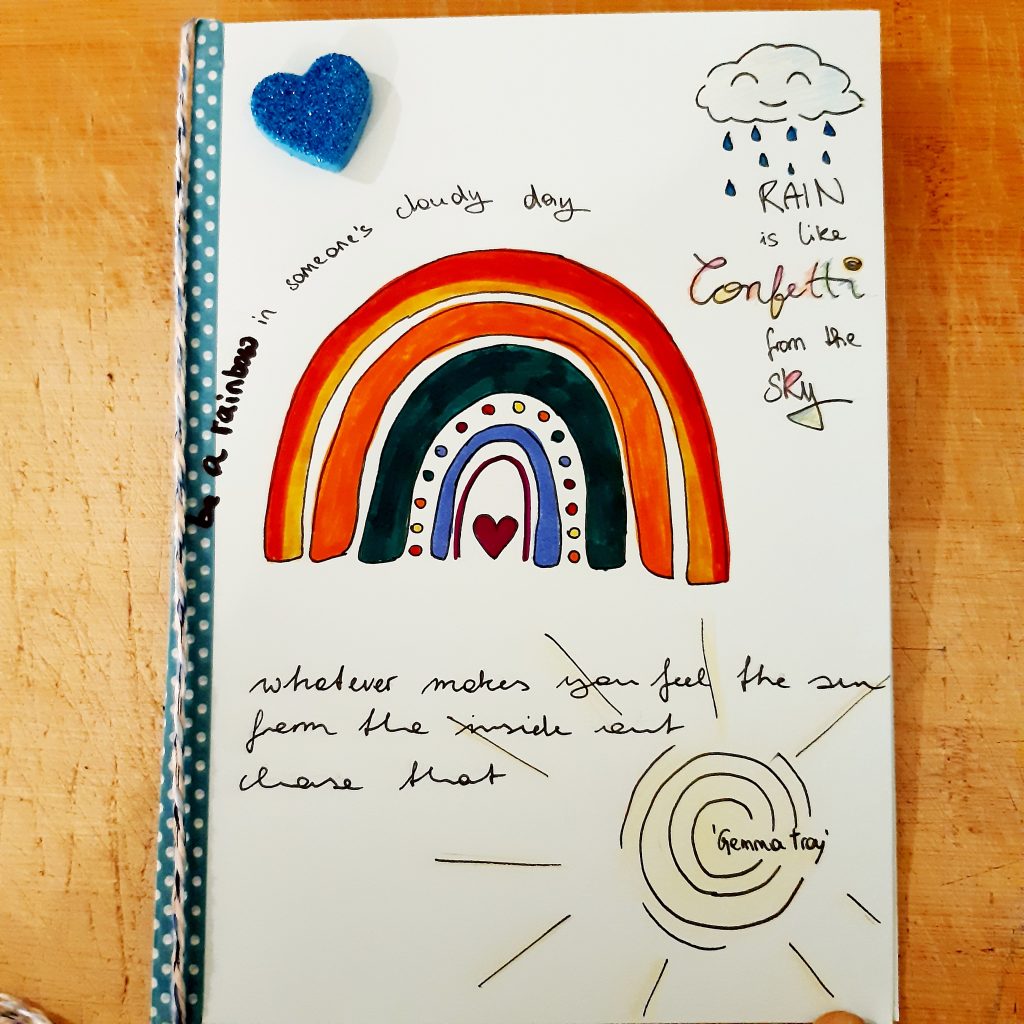 be a rainbow in someone's cloudy day
RAIN
is like
Confetti
from the
SKY
whatever makes you feel the sun
from the inside out
chase that
'Gemma troy'